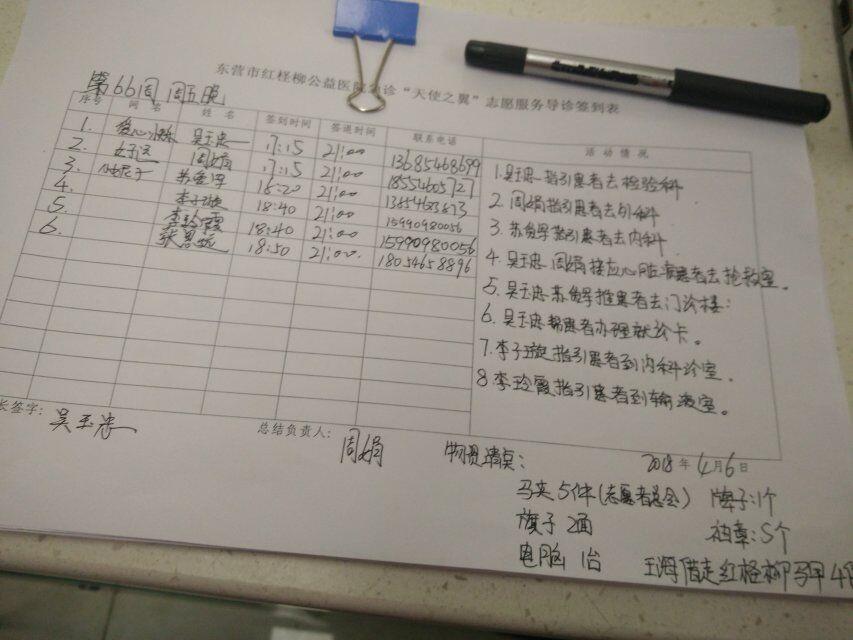 东营市红柽柳公益医院急诊“天使之翼”志愿服务导诊签到表
第66周 周五晚
序号 网名 姓名 签到时间 签退时间 联系电话 活动情况
1. 吴玉忠 17:15 21:00 13685468699
2. 周娟 17:15 21:00 18554605727
3. 21:00
4. 李子璇 18:40 21:00 15990980056
5. 李玲霞 18:40 21:00 15990980056
6. 18:50 21:00 18054658896
1.吴玉忠指引患者去检验科
2.周娟指引患者去外科
3.指引患者去内科
4.吴玉忠 周娟接应心脏病患者去抢救室。
5.吴玉忠推患者去门诊楼:
6.吴玉忠帮患者办理就诊卡。
7.李子璇指引患者到内科诊室。
8 李玲霞指引患者到输液室。
长签字: 吴玉忠 总结负责人: 周娟 物资清点: 2018年4月6日
马夹5件(志愿者总会) 牌子:1个
旗子2面 袖章:5个
电脑1台 王海借走红柽柳马甲4